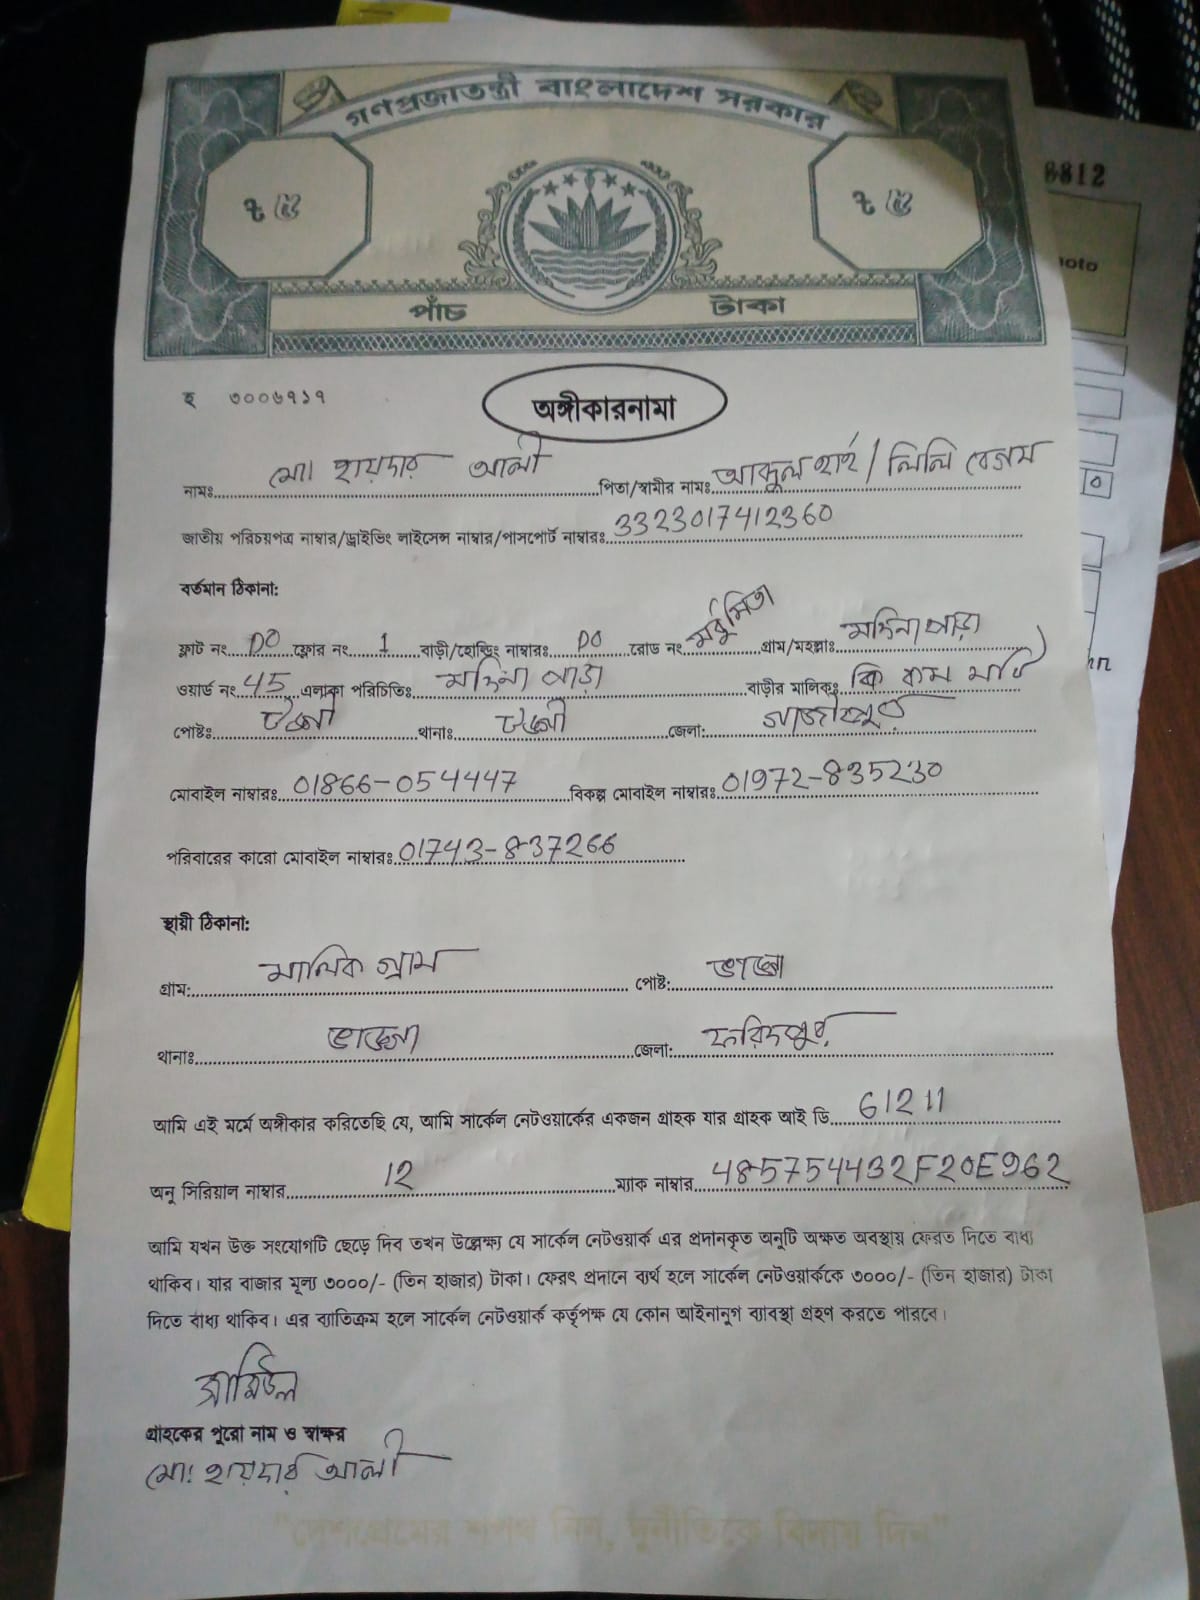 গণপ্রজাতন্ত্রী বাংলাদেশ সরকার
৳ ৫ ৳ ৫
পাঁচ টাকা
8812
hoto
হ ৩০০৬৭১৭
অঙ্গীকারনামা
নামঃ মোঃ হায়দার আলী পিতা/স্বামীর নামঃ / লিলি বেগম
জাতীয় পরিচয়পত্র নাম্বার/ড্রাইভিং লাইসেন্স নাম্বার/পাসপোর্ট নাম্বারঃ 3323017412360
বর্তমান ঠিকানা:
ফ্লাট নং DO ফ্লোর নং 1 বাড়ী/হোল্ডিং নাম্বারঃ DO রোড নং মধুমিতা গ্রাম/মহল্লাঃ
ওয়ার্ড নং 45 এলাকা পরিচিতিঃ বাড়ীর মালিকঃ
পোষ্টঃ টঙ্গী থানাঃ টঙ্গী জেলা: গাজীপুর
মোবাইল নাম্বারঃ 01866-054447 বিকল্প মোবাইল নাম্বারঃ 01972-835230
পরিবারের কারো মোবাইল নাম্বারঃ 01743-837266
স্থায়ী ঠিকানা:
গ্রাম: মালিক গ্রাম পোষ্ট: ভাঙ্গা
থানাঃ ভাঙ্গা জেলা: ফরিদপুর
আমি এই মর্মে অঙ্গীকার করিতেছি যে, আমি সার্কেল নেটওয়ার্কের একজন গ্রাহক যার গ্রাহক আই ডি 61211
অনু সিরিয়াল নাম্বার 12 ম্যাক নাম্বার 485754432F20E962
আমি যখন উক্ত সংযোগটি ছেড়ে দিব তখন উল্লেক্ষ্য যে সার্কেল নেটওয়ার্ক এর প্রদানকৃত অনুটি অক্ষত অবস্থায় ফেরত দিতে বাধ্য
থাকিব। যার বাজার মূল্য ৩০০০/- (তিন হাজার) টাকা। ফেরৎ প্রদানে ব্যর্থ হলে সার্কেল নেটওয়ার্ককে ৩০০০/- (তিন হাজার) টাকা
দিতে বাধ্য থাকিব। এর ব্যতিক্রম হলে সার্কেল নেটওয়ার্ক কর্তৃপক্ষ যে কোন আইনানুগ ব্যাবস্থা গ্রহণ করতে পারবে।
গ্রাহকের পুরো নাম ও স্বাক্ষর
মো: হায়দার আলী
"দেশপ্রেমের শপথ নিন, দুর্নীতিকে বিদায় দিন"